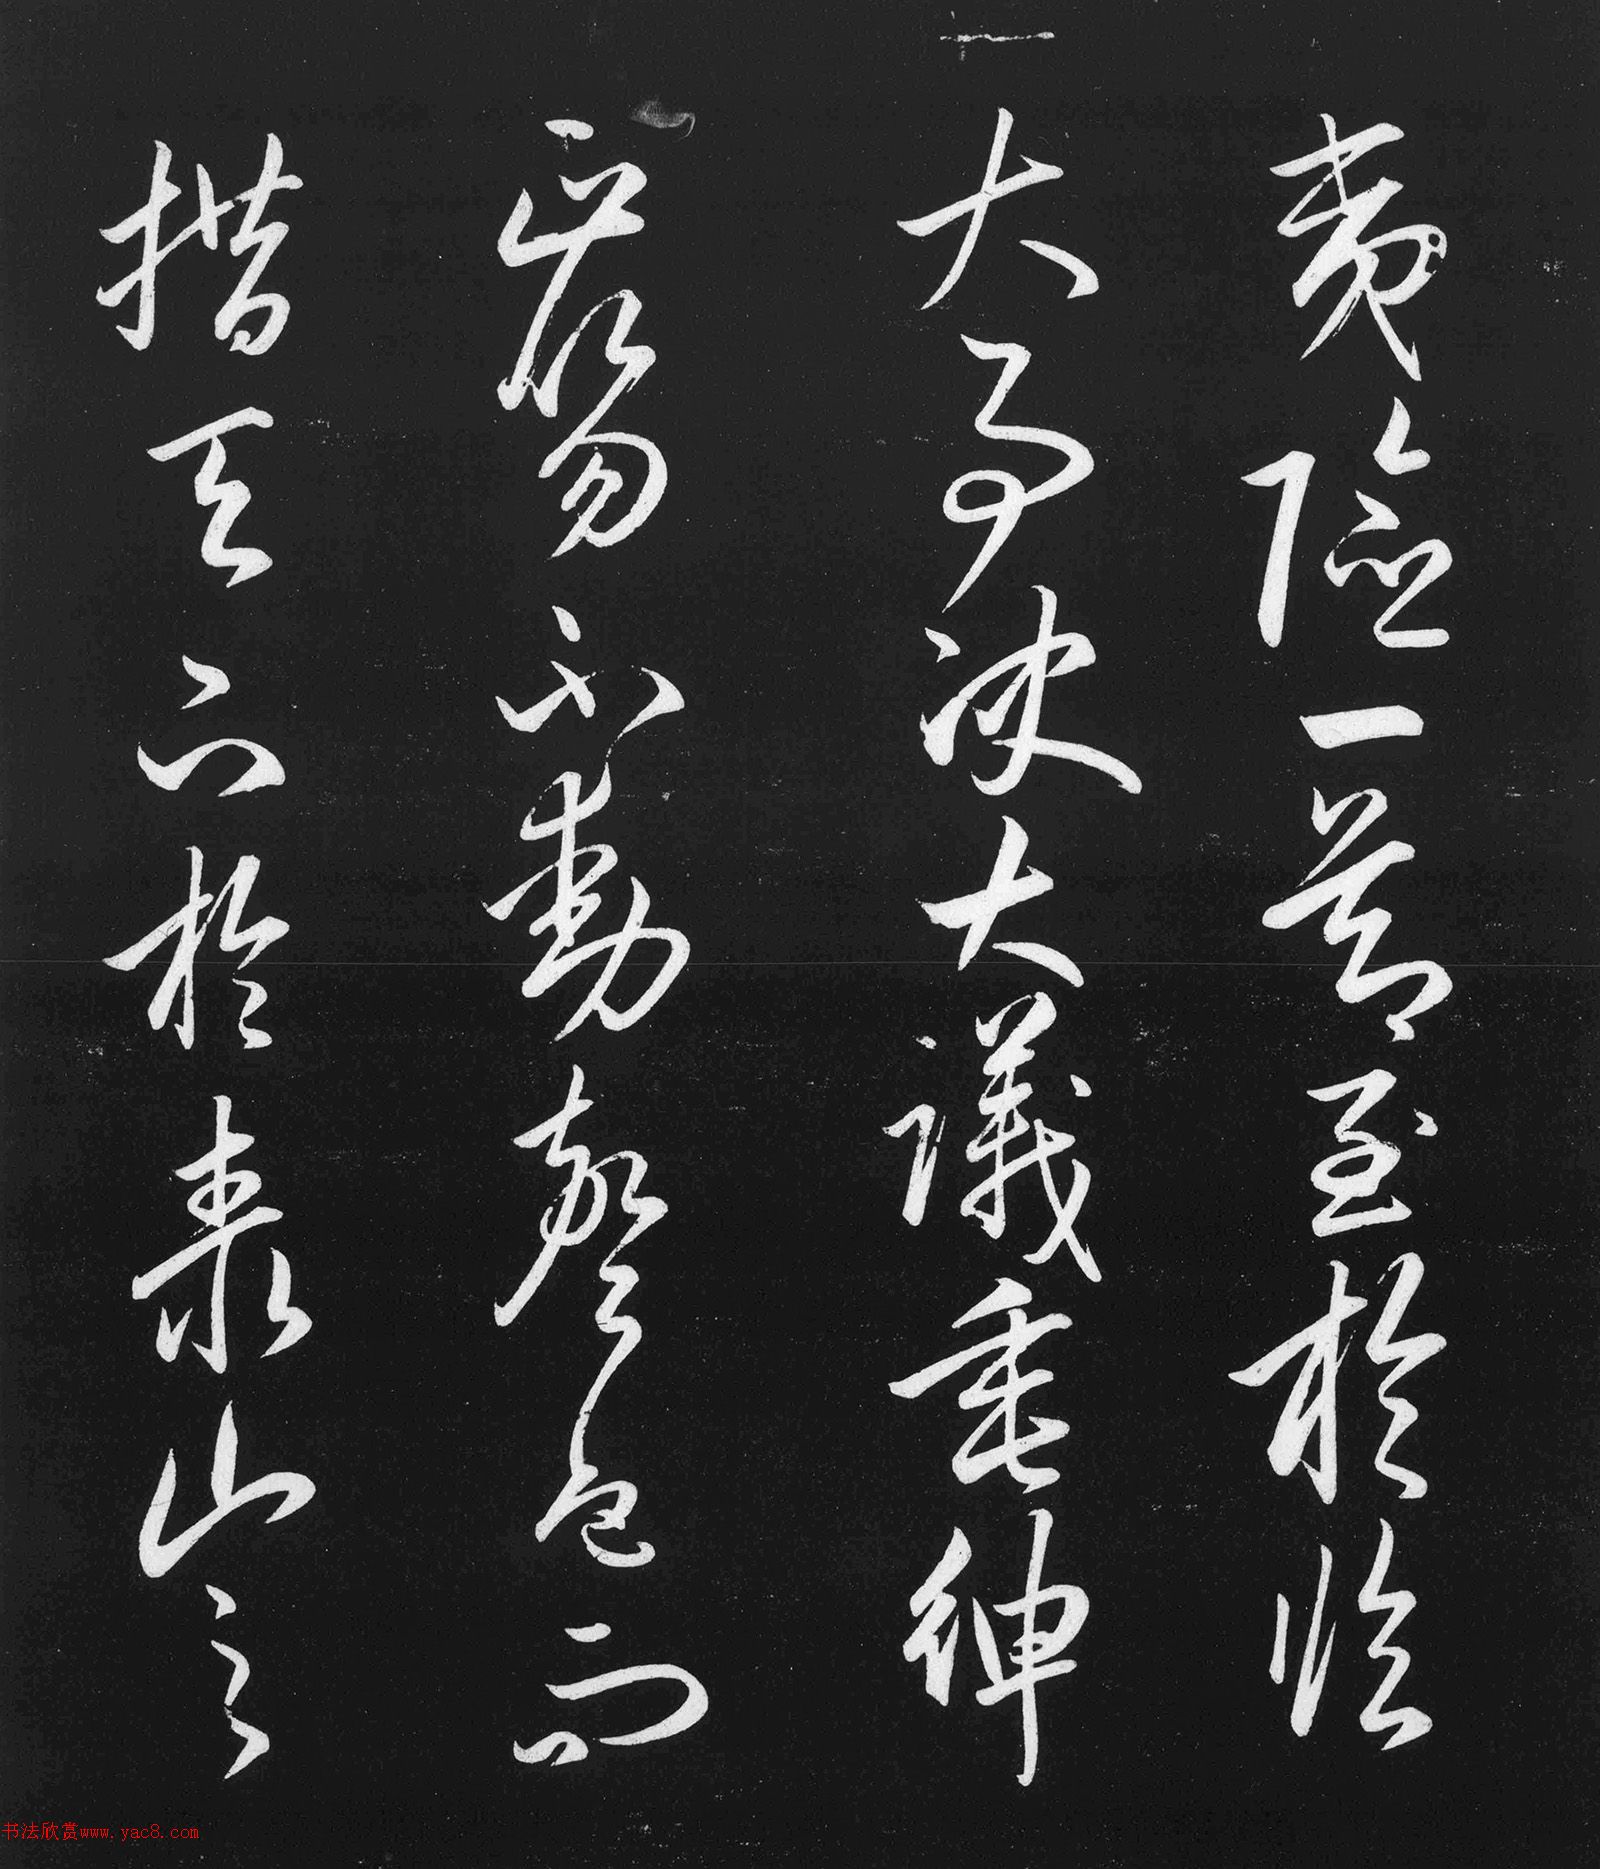 夷險一節至於臨
大事決大議垂紳
正笏不動聲色而
措天下於泰山之
书法欣赏www.yac8.com